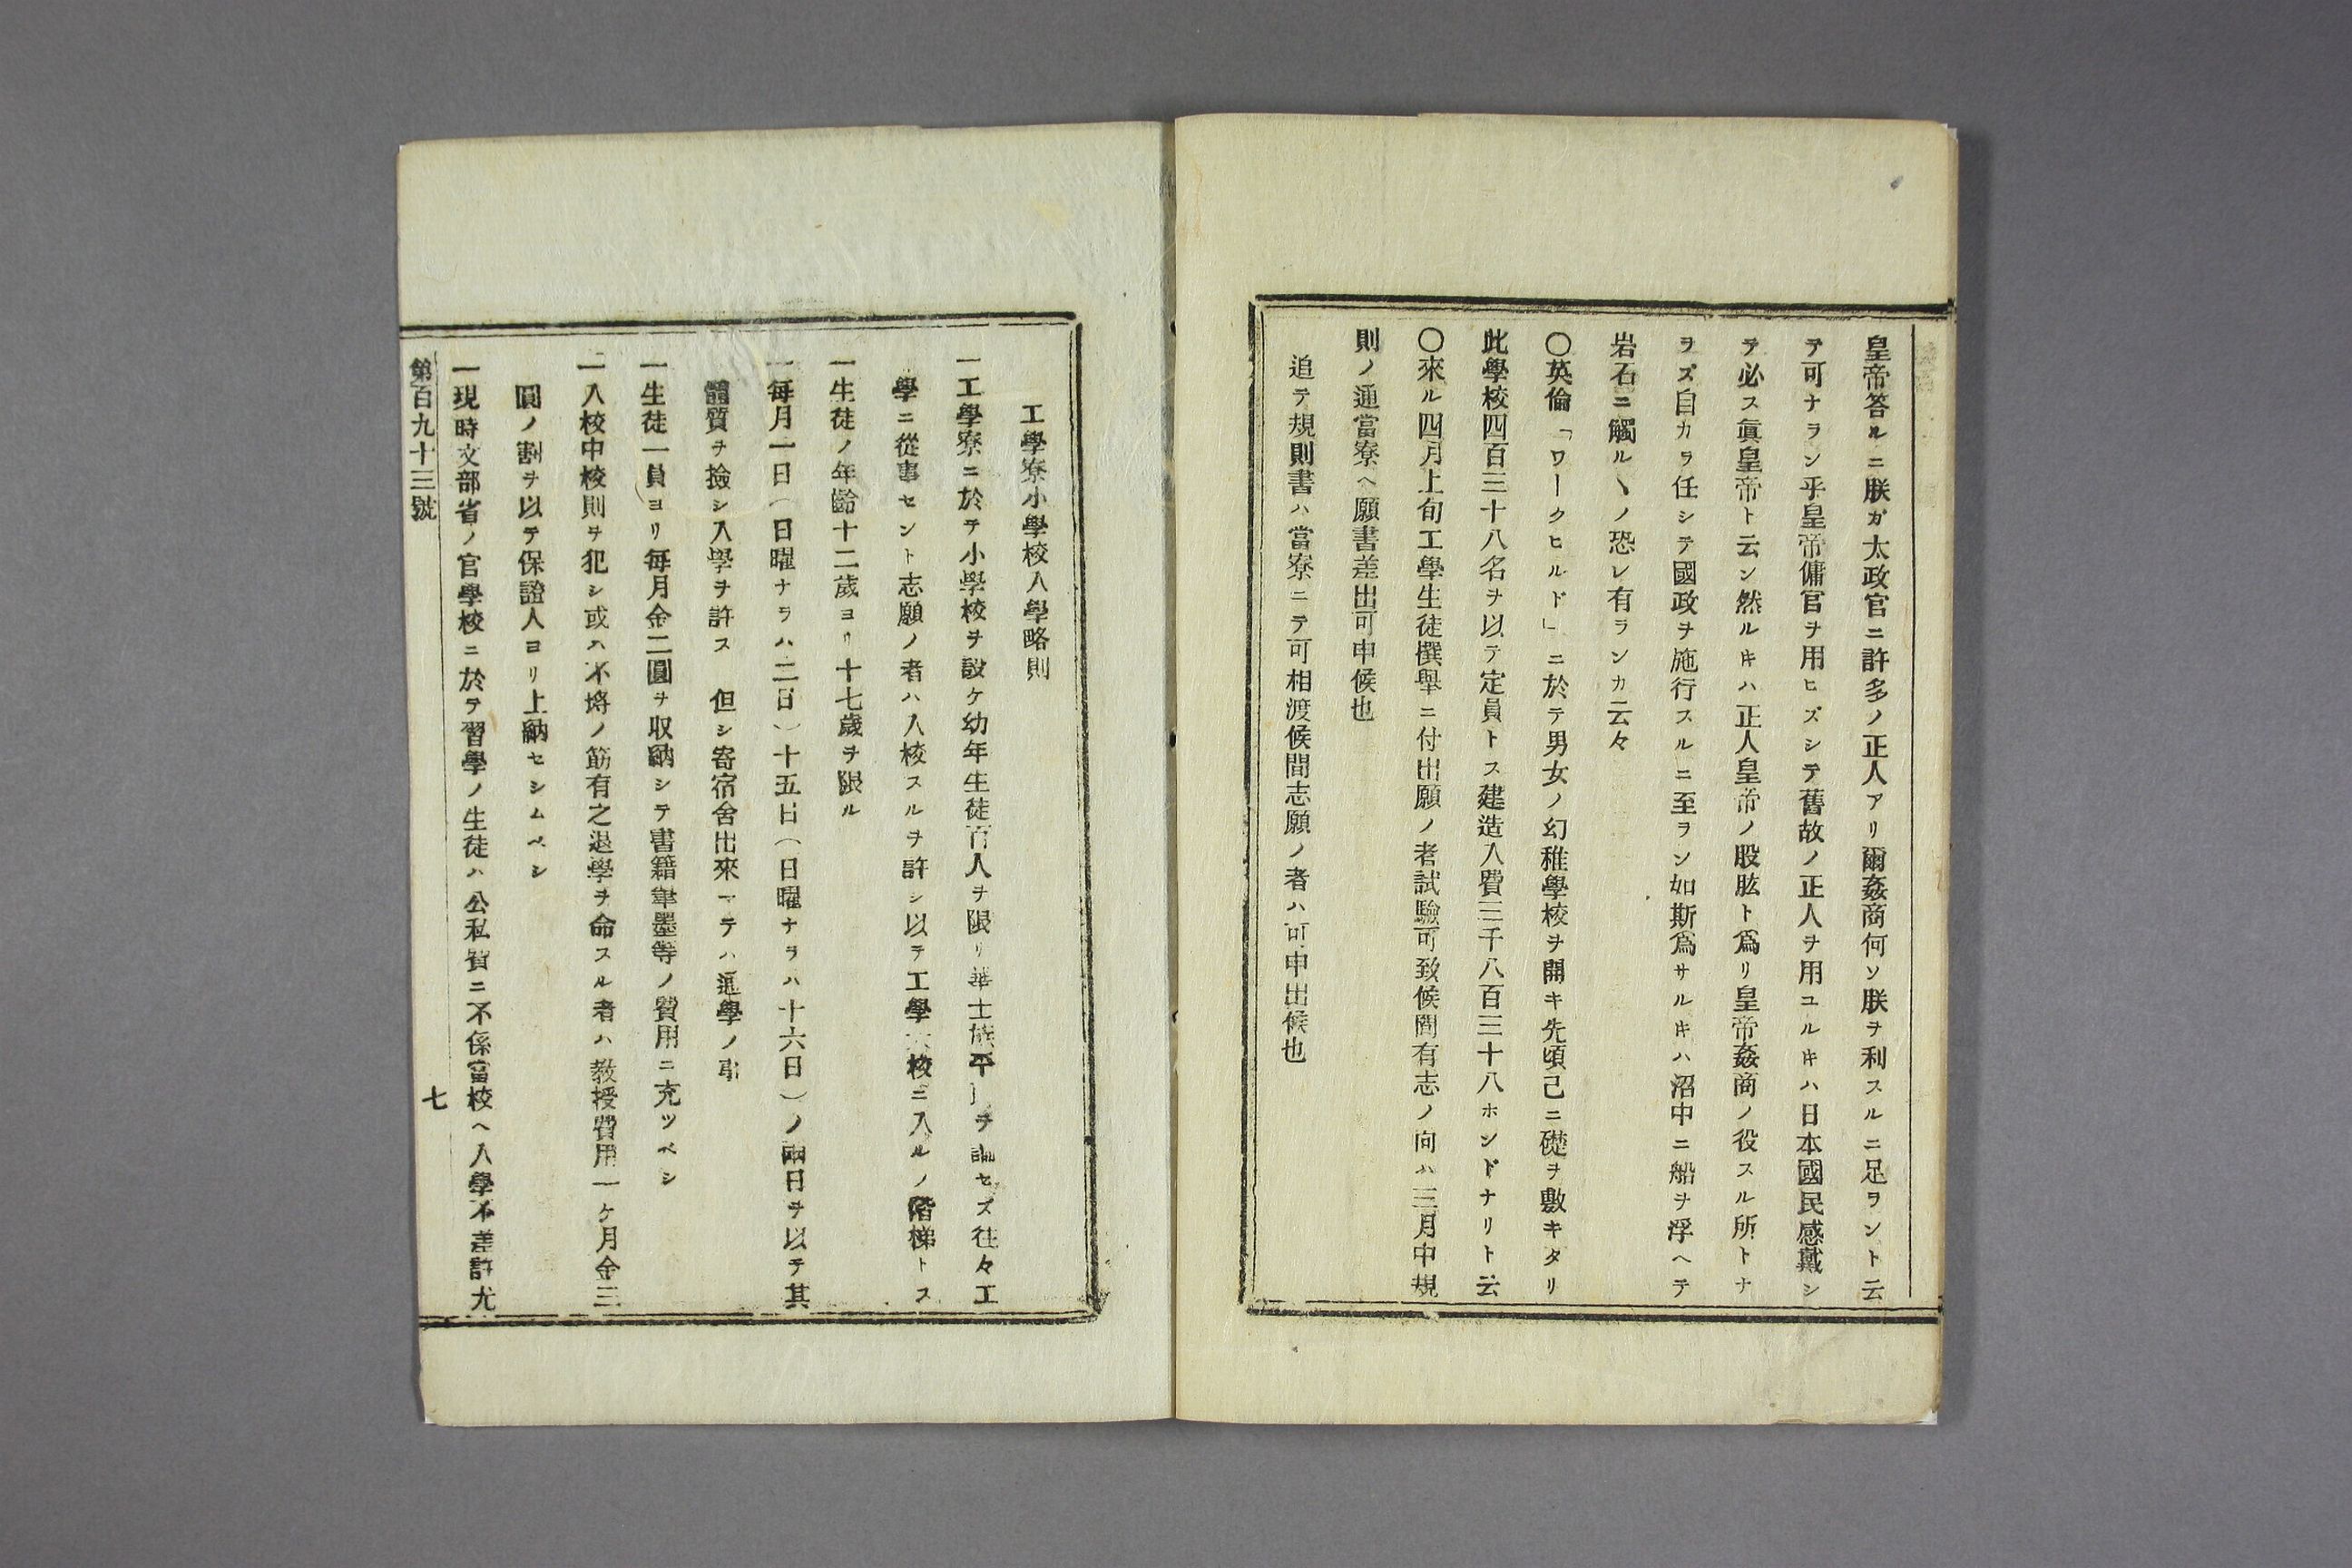 皇帝答ルニ朕ガ太政官ニ許多ノ正人アリ爾姦商何ソ朕ヲ利スルニ足ヲント云
テ可ナラン乎皇帝傭官ヲ用ヒズシテ舊故ノ正人ヲ用ユルキハ日本國民感戴シ
テ必ス眞皇帝ト云ン然ルキハ正人皇帝ノ股肱ト爲リ皇帝姦商ノ役スル所トナ
ヲズ自カラ任シテ國政ヲ施行スルニ至ヲン如斯爲サルキハ沼中ニ船ヲ浮ヘテ
岩石ニ觸ルヽノ恐レ有ランカ云々
〇英倫「ワークヒルド」ニ於テ男女ノ幻稚學校ヲ開キ先頃己ニ礎ヲ敷キタリ
此學校四百三十八名ヲ以テ定員トス建造入費三千八百三十八ホンドナリト云
〇來ル四月上旬工學生徒撰舉ニ付出願ノ者試驗可致候間有志ノ向ハ三月中規
則ノ通當寮ヘ願書差出可申候也
追テ規則書ハ當寮ニテ可相渡候間志願ノ者ハ可申出候也
工學寮小學校入學略則
一工學寮ニ於テ小學校ヲ設ケ幼年生徒百人ヲ限リ華士族平ヲ論セズ往々工
學ニ從事セント志願ノ者ハ入校スルヲ許シ以テ工學校ニ入ルノ階梯トス
一生徒ノ年齡十二歲ヨリ十七歲ヲ限ル
一每月一日(日曜ナラハ二日)十五日(日曜ナラハ十六日)ノ兩日ヲ以テ其
體質ヲ撿シ入學ヲ許ス 但シ寄宿舍出來マテハ通學ノ
一生徒一員ヨリ每月金二圓ヲ収納シテ書籍筆墨等ノ費用ニ充ツベシ
一入校中校則ヲ犯シ或ハ不埓ノ筋有之退學ヲ命スル者ハ敎授費用一ケ月金三
圓ノ割ヲ以テ保證人ヨリ上納セシムベシ
一現時文部省ノ官學校ニ於テ習學ノ生徒ハ公私費ニ不係當校ヘ入學不差許尤
第百九十三號
七